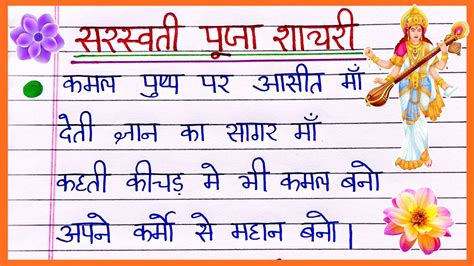 सरस्वती पूजा शायरी
कमल पुष्प पर आसीत माँ
देती ज्ञान का सागर माँ
कहती कीचड़ मे भी कमल बनो
अपने कर्मो से महान बनो।